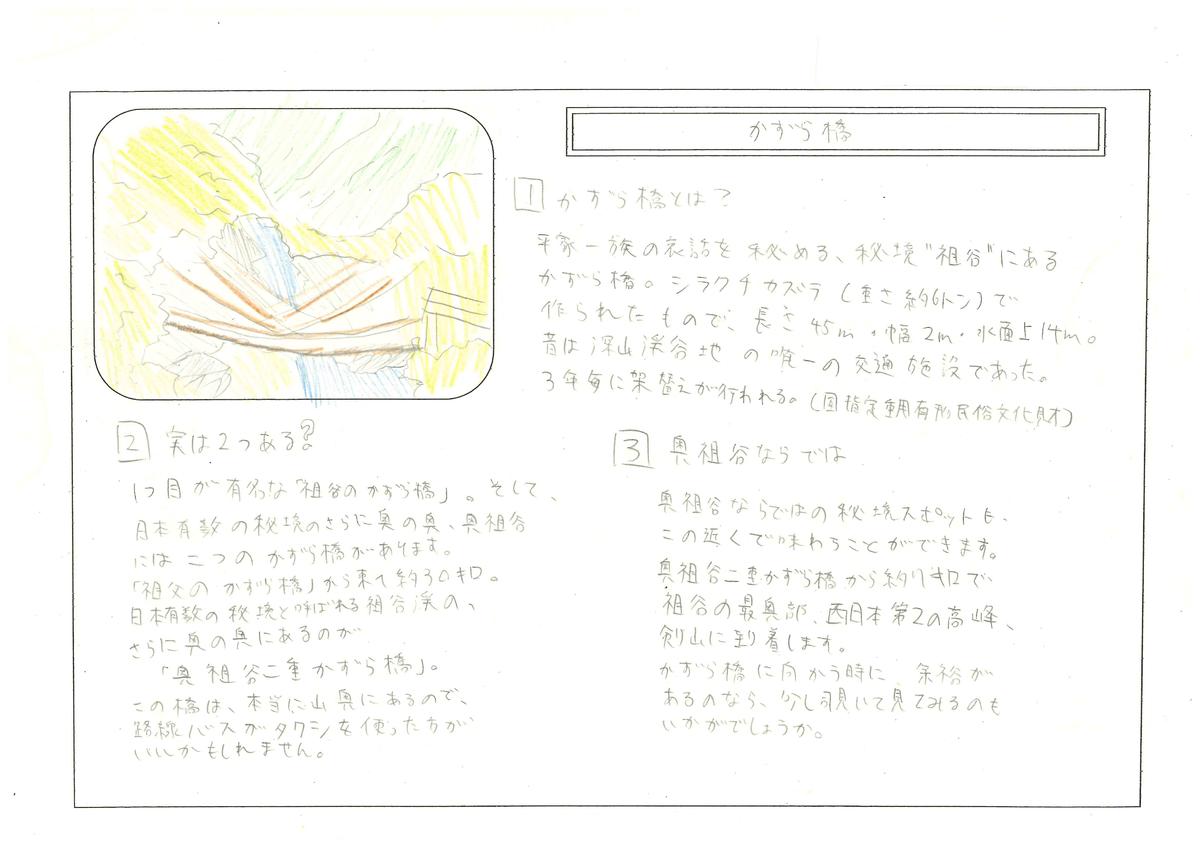 かずら橋
1 かずら橋とは？
平家一族の哀話を秘める、秘境"祖谷"にある
かずら橋。シラクチカズラ（重さ約6トン）で
作られたもので、長さ45m・幅2m・水面上14m。
昔は深山渓谷地の唯一の交通施設であった。
3年毎に架替えが行われる。（国指定重要有形民俗文化財）
2 実は2つある?
1つ目が有名な「祖谷のかずら橋」。そして、
日本有数の秘境のさらに奥の奥、奥祖谷
には二つのかずら橋があります。
「祖父のかずら橋」から東て約30キロ。
日本有数の秘境と呼ばれる祖谷渓の、
さらに奥の奥にあるのが
「奥祖谷二重かずら橋」。
この橋は、本当に山奥にあるので、
路線バスかタクシを使った方が
いいかもしれません。
3 奥祖谷ならでは
奥祖谷ならではの秘境スポットも、
この近くで味わうことができます。
奥祖谷二重かずら橋から約キロで
祖谷の最奥部、西日本第2の高峰、
剣山に到着します。
かずら橋に向かう時に 余裕が
あるのなら、少し覗いて見てみるのも
いかがでしょうか。